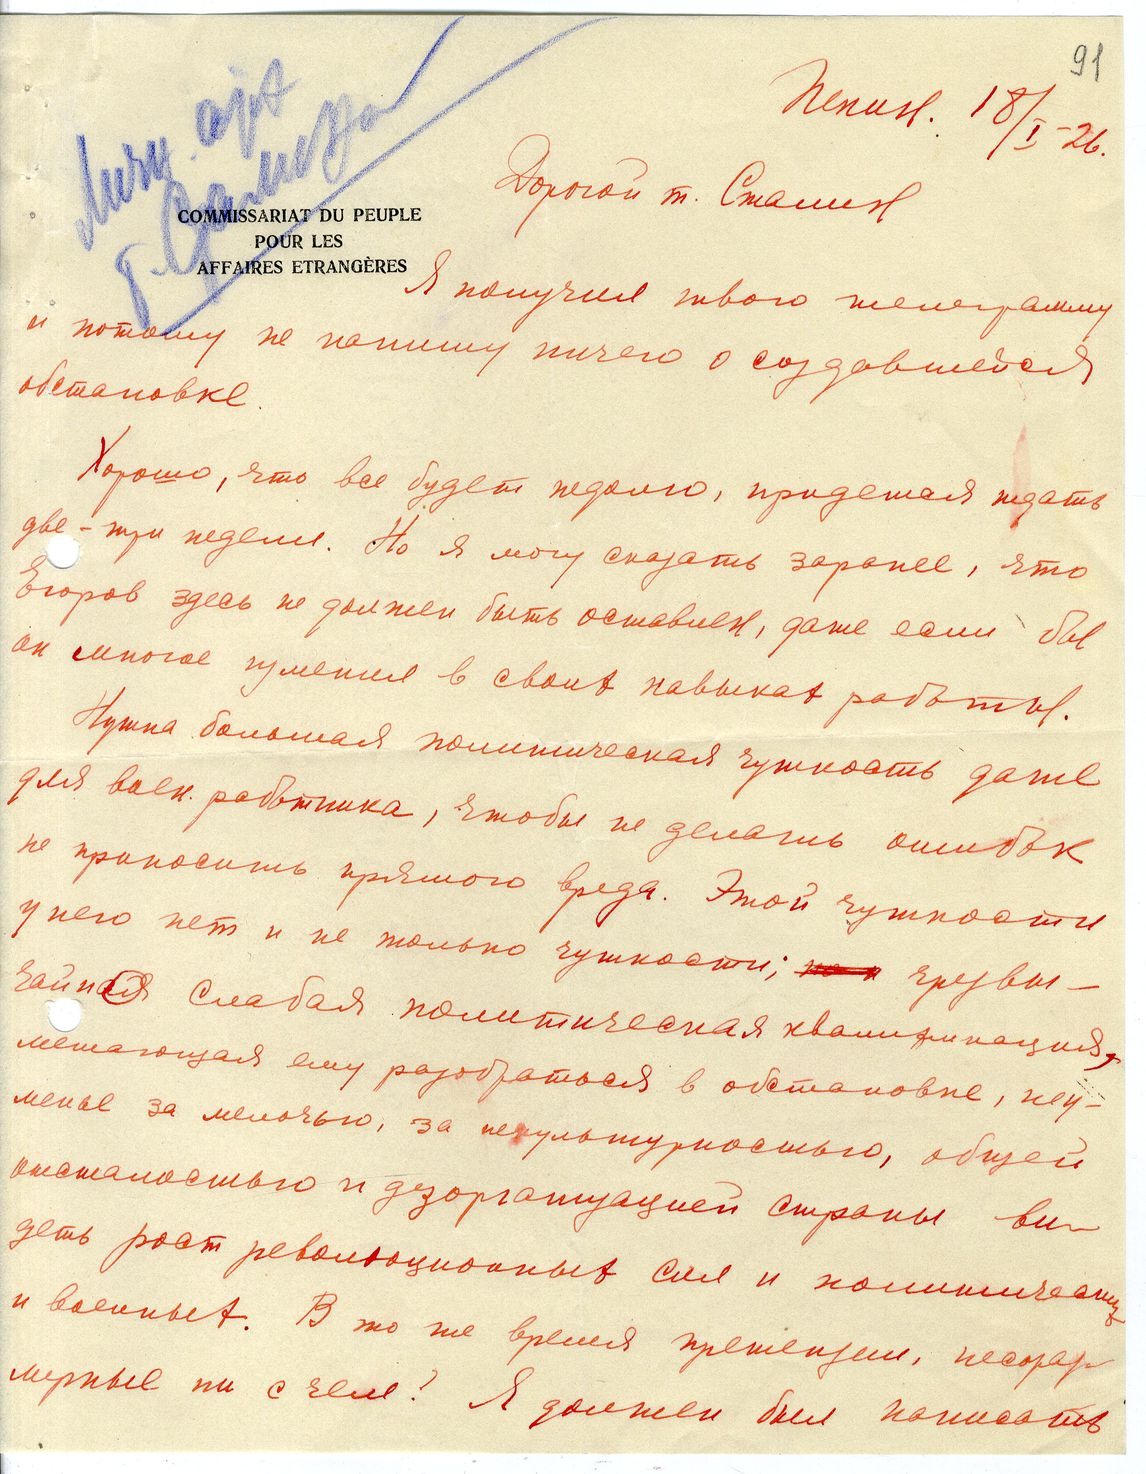 91
Личн. арх
т. Сталина
Пекин. 18/I-26.
Дорогой т. Сталин
COMMISSARIAT DU PEUPLE
POUR LES
AFFAIRES ETRANGÈRES
Я получил твою телеграмму
и потому не напишу ничего о создавшейся
обстановке.
Хорошо, что все будет недолго, придется ждать
две-три недели. Но я могу сказать заранее, что
Егоров здесь не должен быть оставлен, даже если бы
он многое изменил в своих навыках работы.
Нужна большая политическая чуткость даже
для воен. работника, чтобы не делать ошибок
не приносить прямого вреда. Этой чуткости
у него нет и не только чуткости; чрезвы-
чайная слабая политическая квалификация,
мешающая ему разобраться в обстановке, неу-
менье за мелочью, за некультурностью, общей
отсталостью и дезорганизацией страны ви-
деть рост революционных сил и политических
и военных. В то же время претензии, несораз-
мерные ни с чем! Я должен был написать